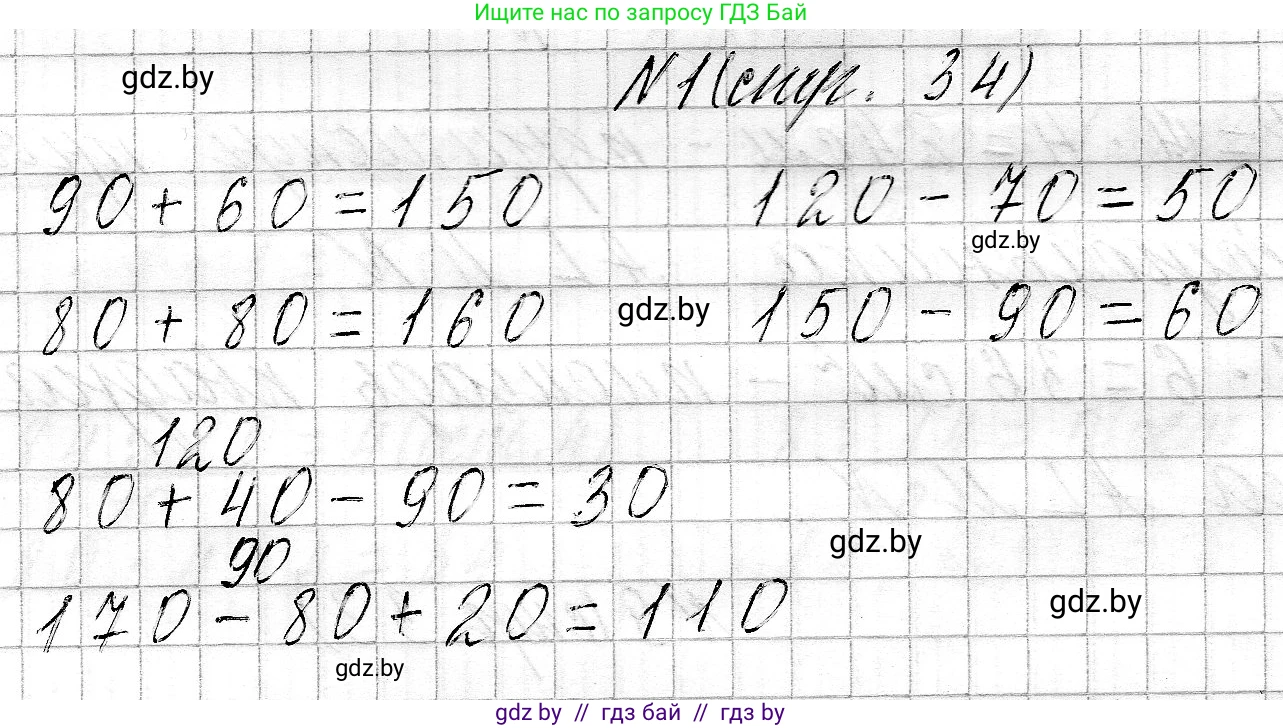 Ищите нас по запросу ГДЗ Бай
gdz.by
№1 (стр. 34)
90 + 60 = 150
120 - 70 = 50
gdz.by
80 + 80 = 160
gdz.by
150 - 90 = 60
120
80 + 40 - 90 = 30
gdz.by
90
170 - 80 + 20 = 110
gdz.by
gdz.by
gdz by // гдз бай // гдз by